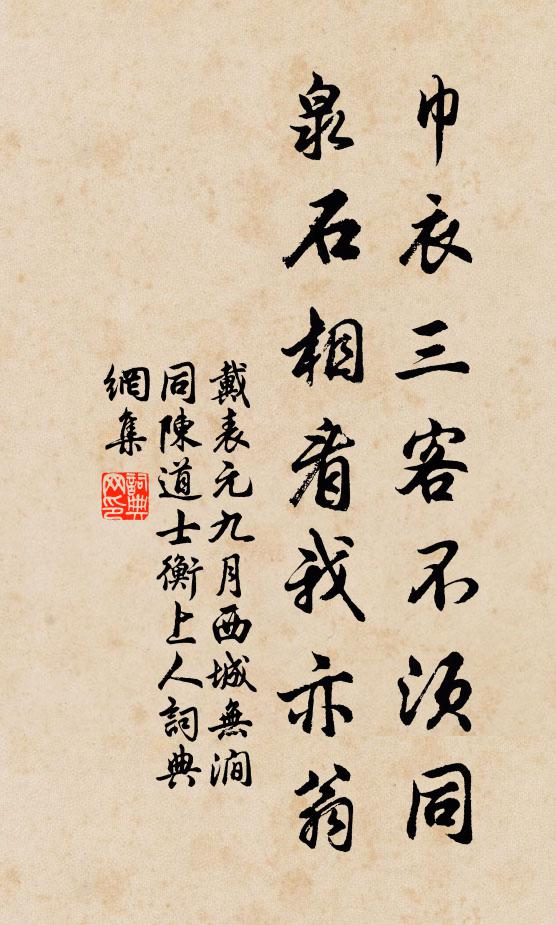 巾衣三客不須同
泉石相看我亦翁
戴表元九月西城無澗
同陳道士衡上人詞典
網集
詞典
网印